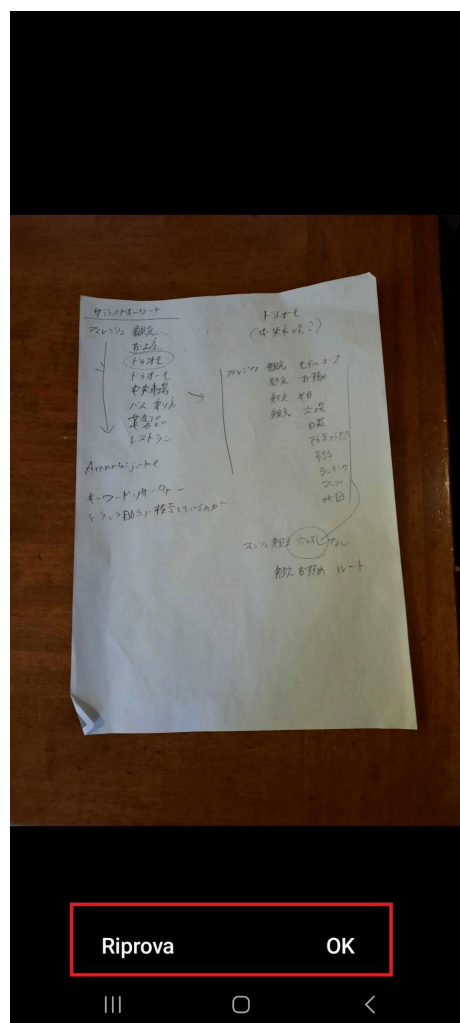 サジェストキーワード
フィレンツェ 観光
お土産
ドゥオモ
ドゥオーモ
中央市場
バス 乗り方
革製品
レストラン
キーワードリサーチ
どういう目的で検索しているのか
ドゥオモ
(中央市場)
フィレンツェ 観光 モデルコース
観光 お勧め
観光 半日
観光 穴場
日数
ランキング
マップ
地図
フィレンツェ 観光 穴場
観光 お勧め ルート
Riprova OK